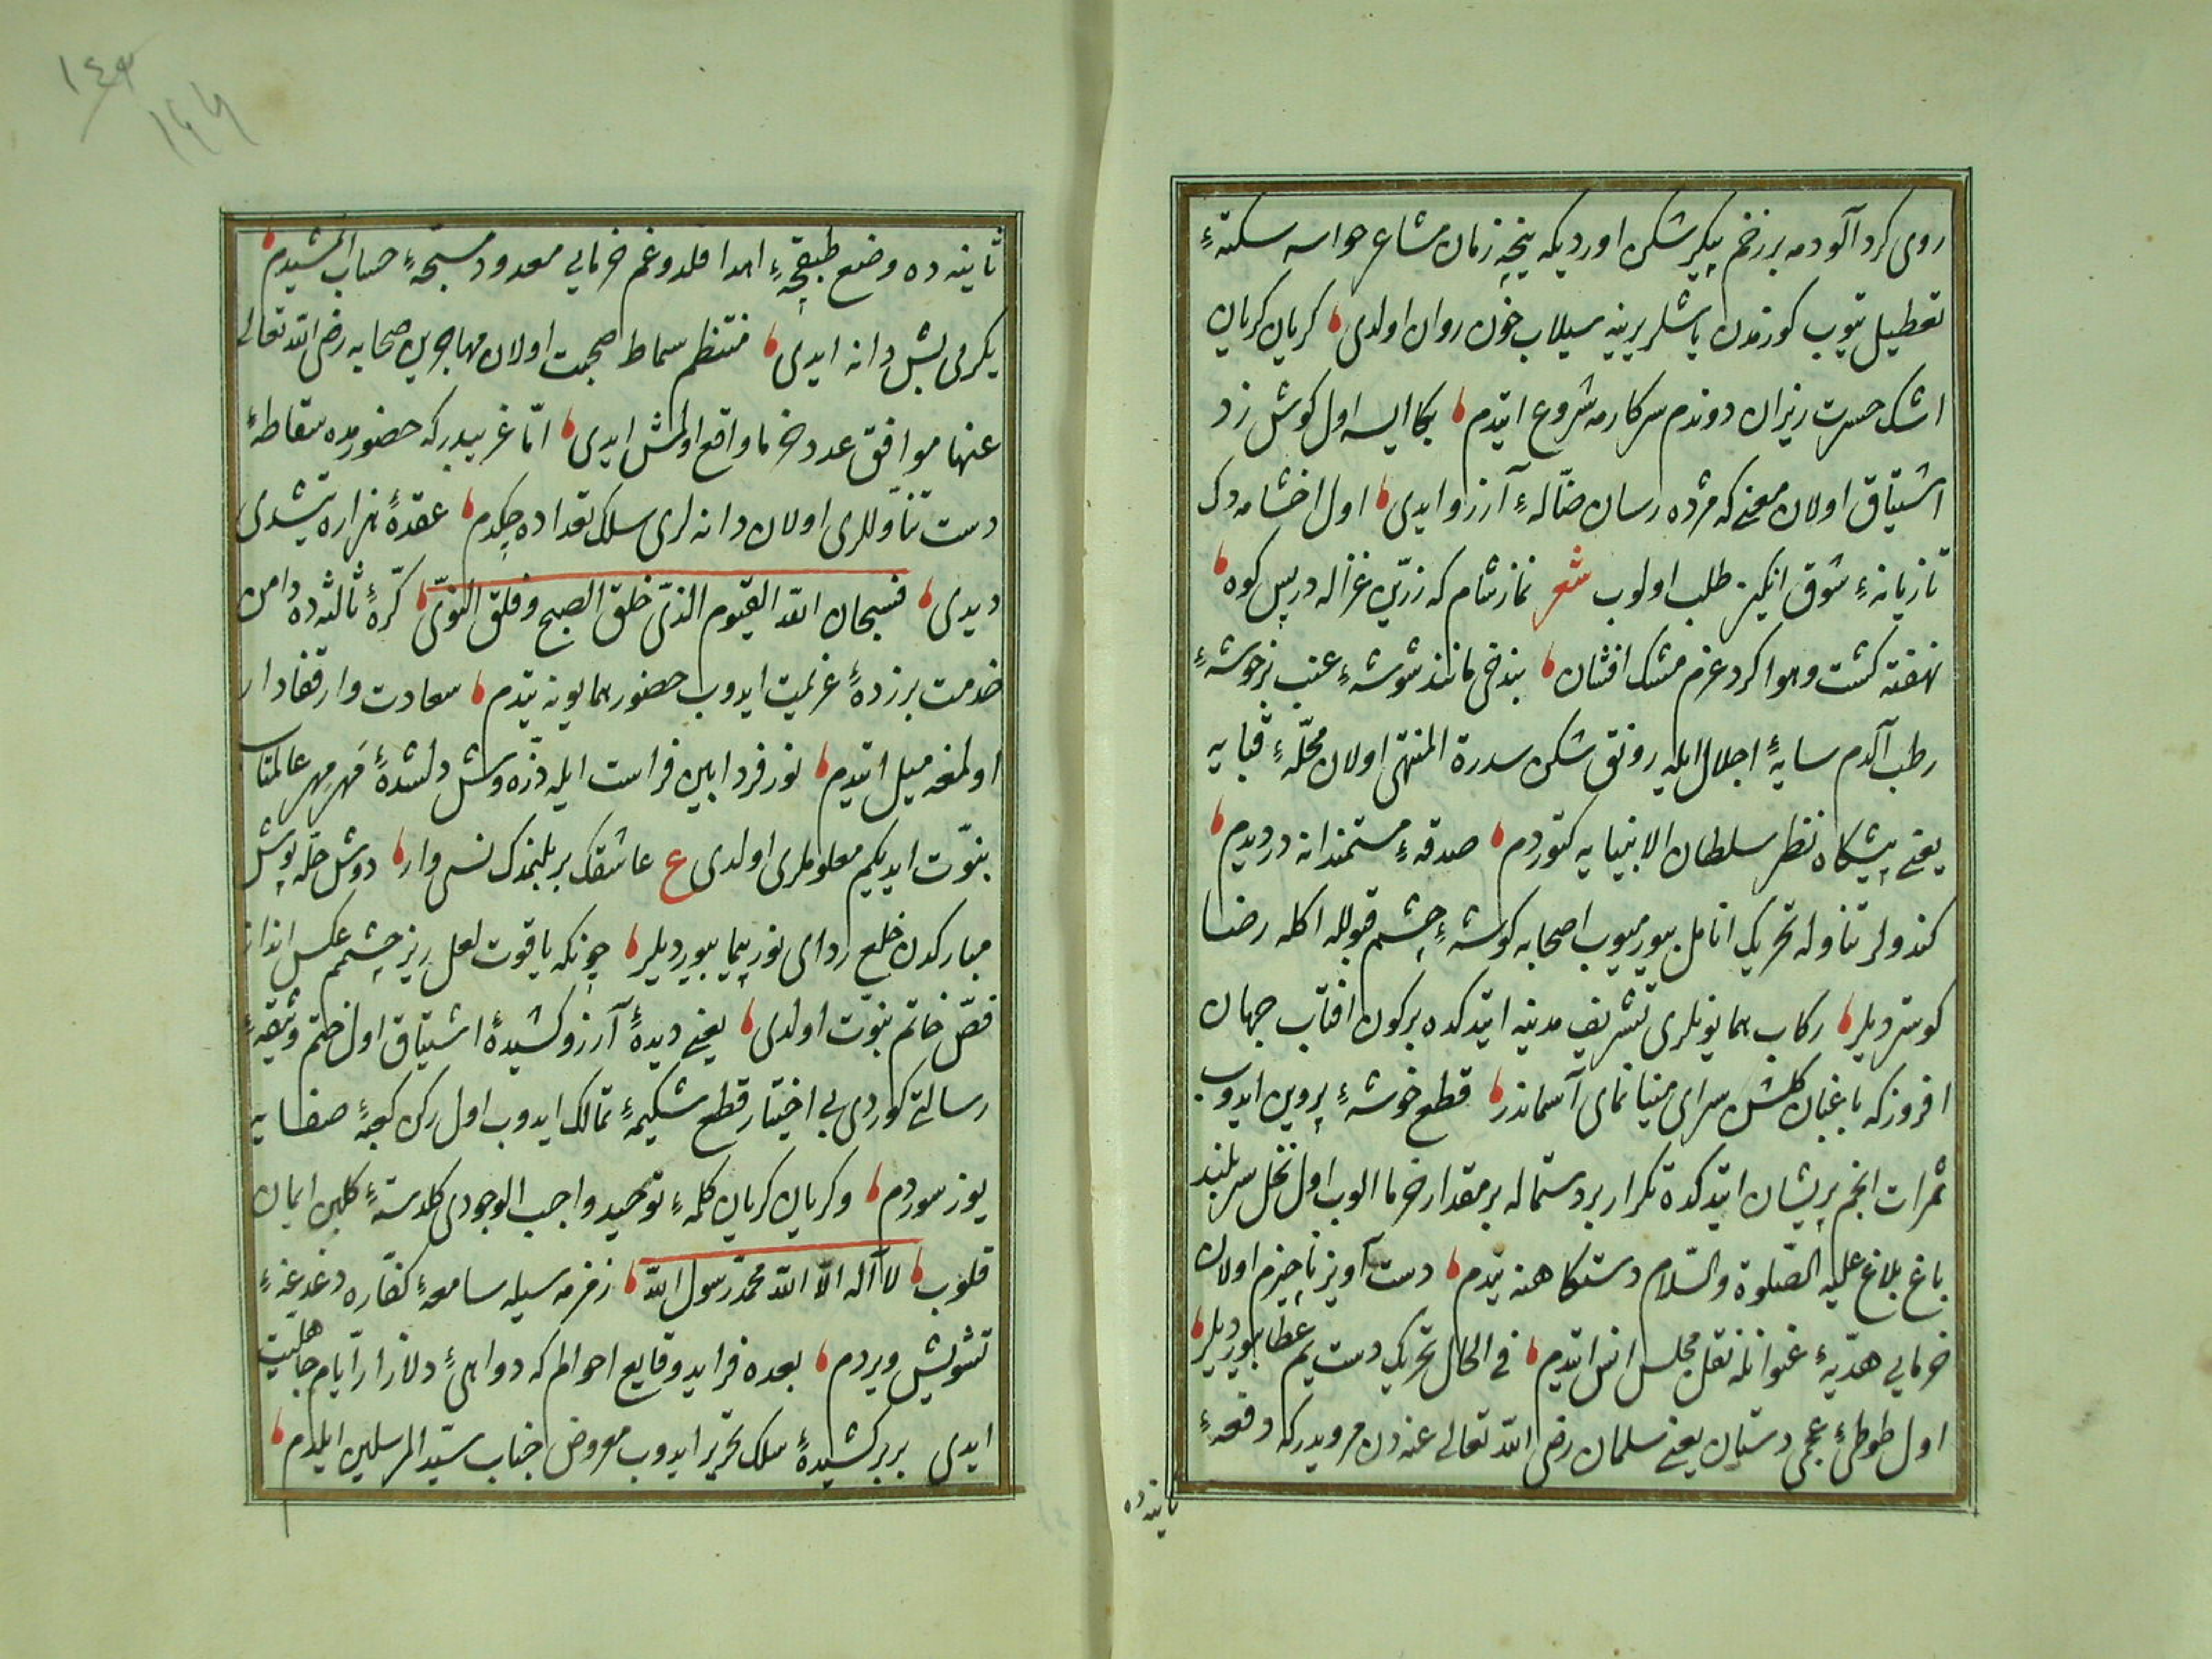 روی کرد آلودمه بر زخم پیکر شکن اوردیکه نیجه زمان مشاعر حواسه سکتهٔ
تعطیل یتوب کوزمدن یاشلر یرینه سیلاب خون روان اولدی کریان کریان
اشک حسرت ریزان دوندم سرکارمه شروع ایتدم بکا ایسه اول کوش زد
اشتیاق اولان معنی که مژده رسان ضالهٔ آرزو ایدی اول اخشامدک
تازیانهٔ شوق انکیز طلب اولوب شعر نماز شام که زرین غزاله در پس کوه
نهفته کشت و هوا کرد عزم مشک افشان بندخی مانند شوشهٔ عنب بر خوشهٔ
رطب آلدم سایهٔ اجلال ایله رونق شکن سدرة المنتهی اولان محلهٔ قبایه
یعنی پیشکاه نظر سلطان الانبیایه کتوردم صدقهٔ مستمندانه در دیدم
کندولر تناوله تحریک انامل بیورمیوب اصحابه کوشهٔ چشم قبولله اکله رضا
کوستردیلر رکاب همایونلری تشریف مدینه ایتدکده بر کون افتاب جهان
افروز که باغبان کلشن سرای مینا نمای آسماندر قطع خوشهٔ پروین ایدوب
ثمرات انجم پریشان ایتدکده تکرار بر دستماله بر مقدار خرما الوب اول نخل سربلند
باغ بلاغ علیه الصلوة والسلام دستکاهنه یتدم دست آویز ناچیزم اولان
خرمایی هدیهٔ عنوانله نقل مجلس انس ایتدم فی الحال تحریک دست یم عطا بیوردیلر
اول طوطئ عجمی دستان یعنی سلمان رضی الله تعالی عنه دن مرویدرکه دفعهٔ
ثانیه ده
١٤٣
١٤٤
ثانیه ده وضع طبقچهٔ اهدا قلدوغم خرمایی معدود مسبحهٔ حساب المشیدم
یکرمی بش دانه ایدی منتظم سماط صحبت اولان مهاجرین صحابه رضی الله تعالی
عنها موافق عدد خرما واقع اولمش ایدی اما غریبدرکه حضورمده سقاطهٔ
دست تناوللری اولان دانه لری سلک تعداده چکدم عقدهٔ هزاره یتشدی
دیدی فسبحان الله القیوم الذی خلق الصبح و فلق النوی کرهٔ ثالثه ده دامن
خدمت بر زدهٔ عزیمت ایدوب حضور همایونه یتدم سعادت وار قفادار
اولمغه میل ایتدم نور فردا بین فراست ایله ذره وش دلشدهٔ مهر مهر عالمتاب
نبوت ایدیکیم معلوملری اولدی ع عاشقک بر بلنمدک نسی وار دوش حله پوش
مبارکدن خلع ردای نور پیما بیوردیلر چونکه یاقوت لعل ریز چشمم عکس انداز
فص خاتم نبوت اولدی یعنی دیدهٔ آرزو کشیدهٔ اشتیاق اول ختم وثیقهٔ
رسالتی کوردی بی اختیار قطع شکیمهٔ تمالک ایدوب اول رکن کعبهٔ صفایه
یوز سوردم و کریان کریان کلمهٔ توحید واجب الوجودی کلدستهٔ کلبن ایمان
قلوب لا اله الا الله محمد رسول الله زمزمه سیله سامعهٔ کفاره دغدغهٔ
تشویش ویردم بعده فراید وقایع احوالم که دواهئ دلازار ایام جاهلیت
ایدی بر بر کشیدهٔ سلک تحریر ایدوب معروض جناب سید المرسلین ایلدم